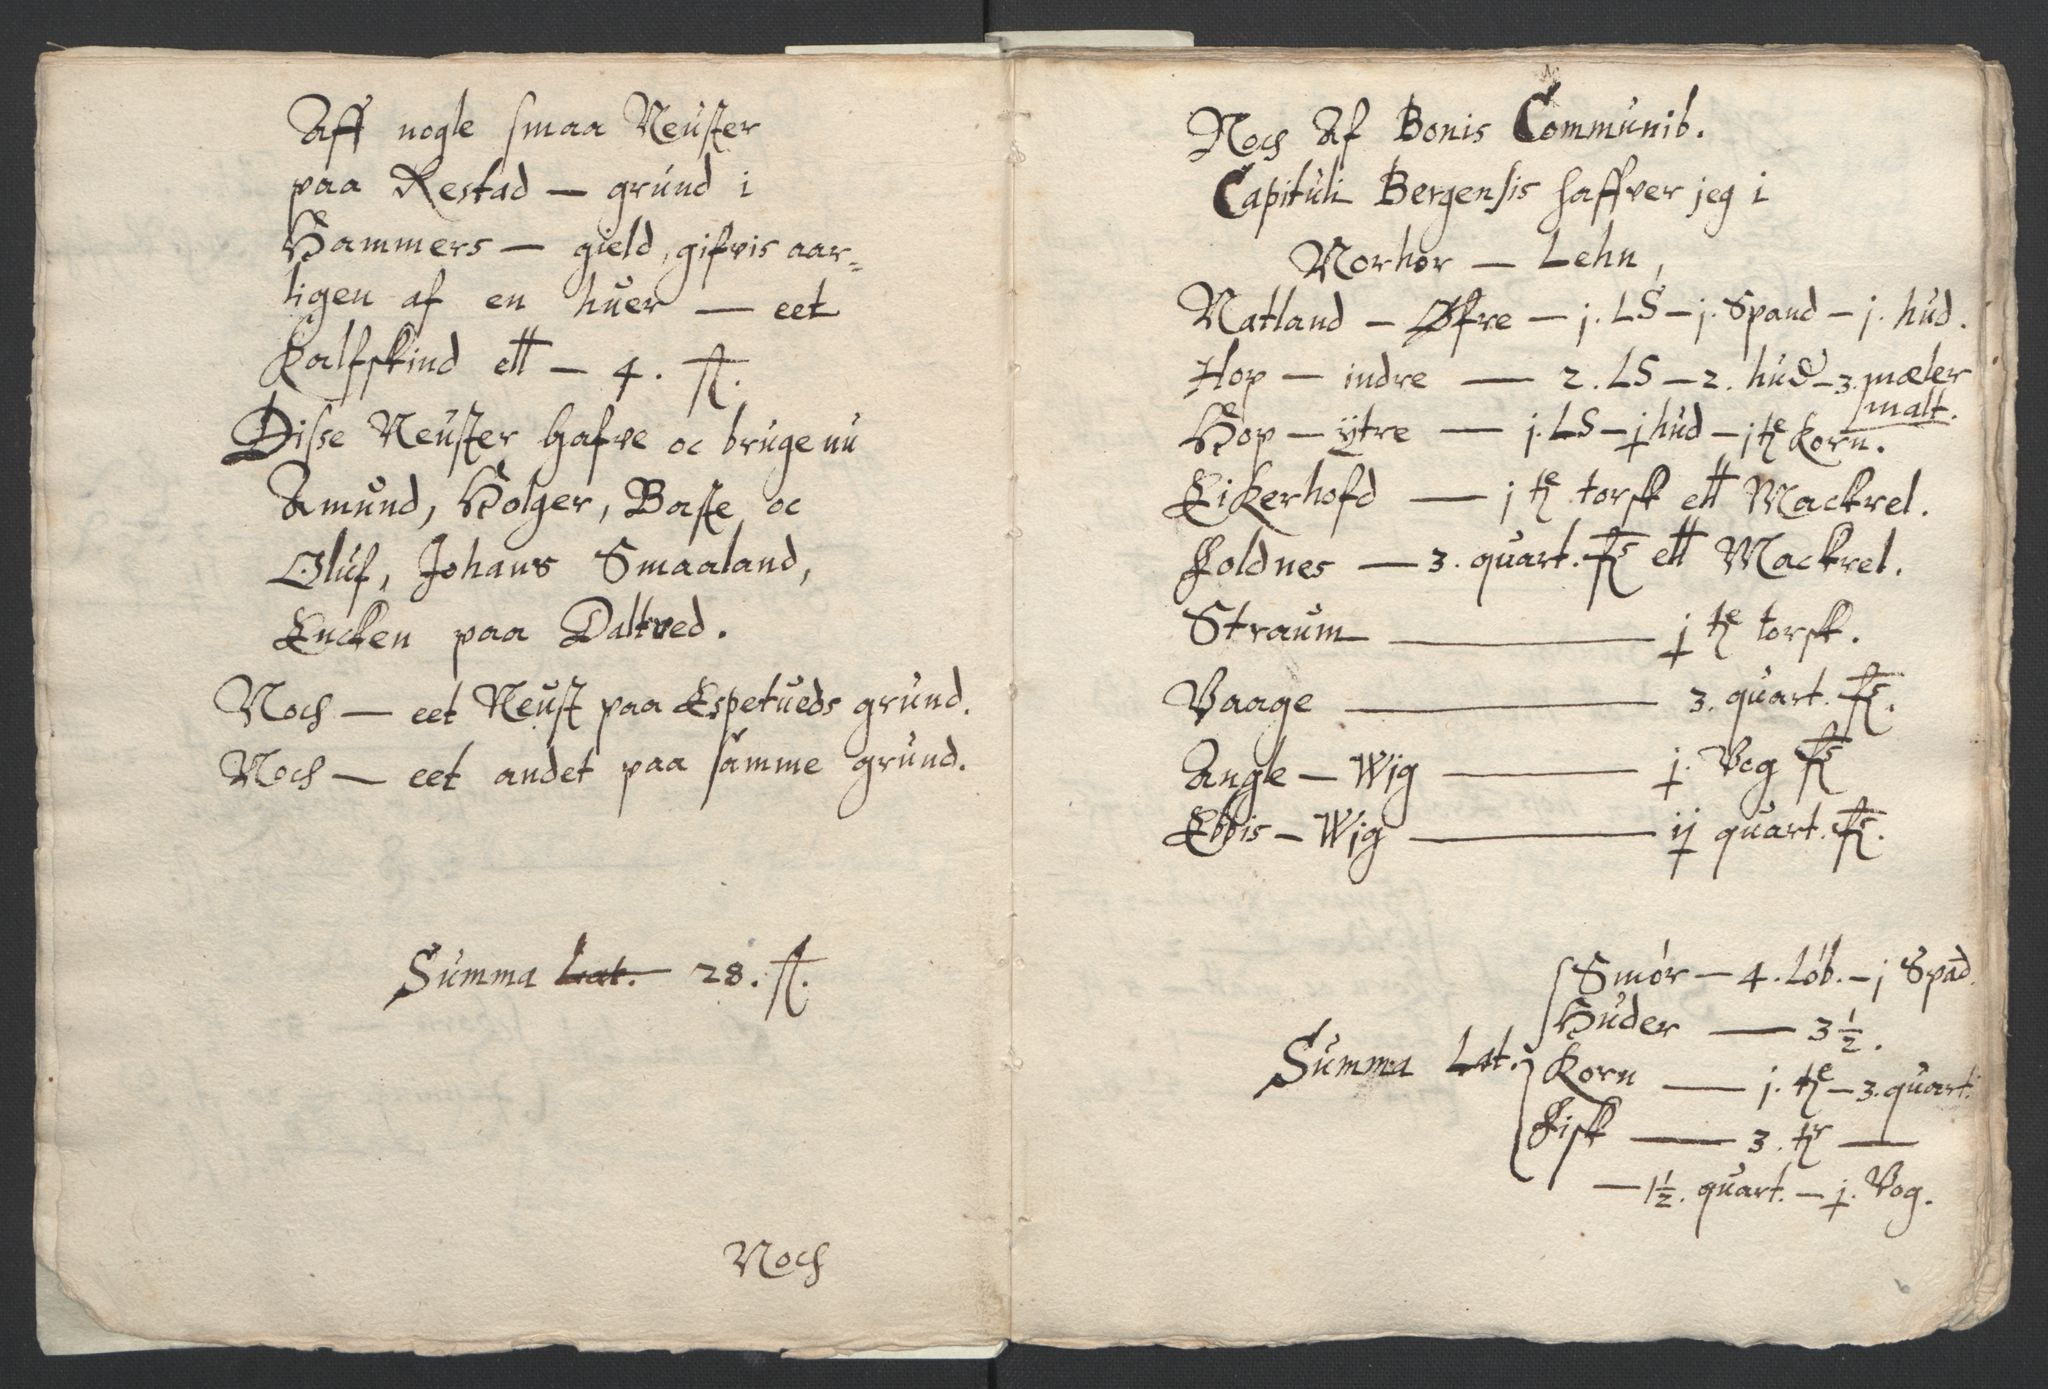 Aff nogle smaa Neuster
paa Restad — grund i
Hammers — gield, gifvis aar-
ligen af en huer — eet
Kalfskind ell — 4. ß.
Disse Neuster hafve oc bruge nu
Amund, Holger, Baste oc
Oluf, Johans Smaaland,
Encken paa Daltved.
Noch — eet Neust paa Espetueds grund.
Noch — eet andet paa samme grund.
Summa Lat. 28. ß.
Noch
Noch Af Bonis Communib.
Capituli Bergensis haffver jeg i
Norhor — Lehn,
Natland — Øfre — j. LS — j. Spand — j. hud.
Hop — indre — 2. LS — 2. hud — 3. mæler
malt.
Hop — ytre — j. LS — j hud — j tꝭ Korn.
Eikerhofd — j tꝭ torsk ell Mackrel.
Foldnes — 3. quart. fs ell Mackrel.
Straum — j tꝭ torsk.
Vaage — 3. quart. fs.
Angle — Wjg — j. Vog fs
Ebbis — Wjg — ij quart. fs.
Summa Lat.
Smør — 4. Løb. — j Spad.
Huder — 3 1/2.
Korn — j. tꝭ — 3. quart.
Fisk — 3. tr —
— 1 1/2. quart. — j. Vog.